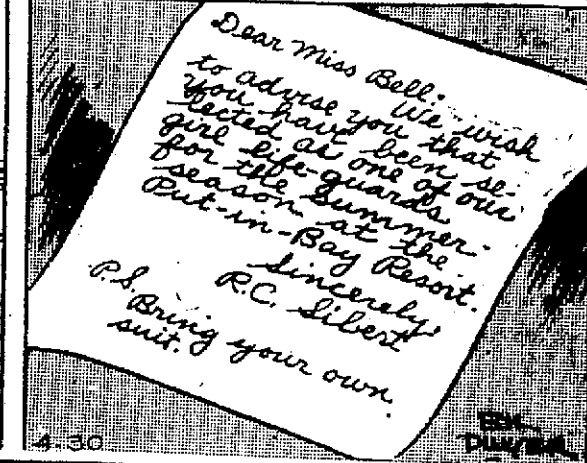 Dear Miss Bell:
We wish
to advise you that
you have been se-
lected as one of our
girl life-guards
for the Summer
season at the
Put-in-Bay Resort.
Sincerely,
R.C. Sibert
P.S.
Bring your own
suit.
4-30